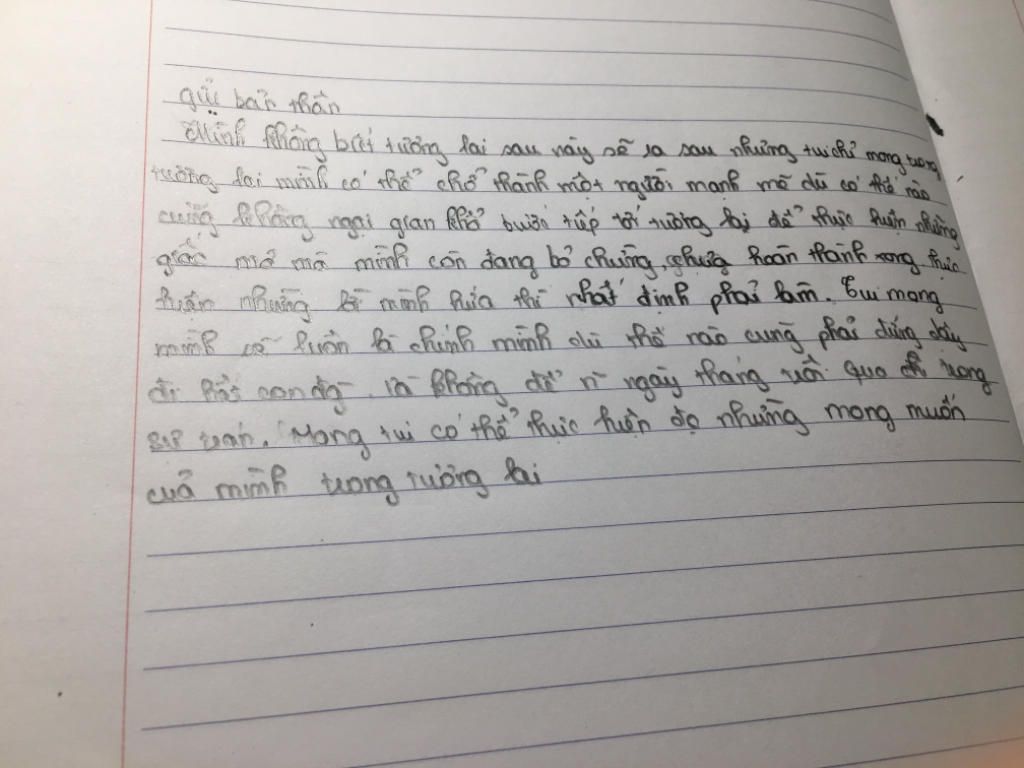 gửi bản thân
Mình không biết tương lai sau này sẽ ra sau nhưng tui chỉ mong trong
tương lai mình có thể chở thành một người mạnh mẽ dù có thế nào
cũng không ngại gian khổ bước tiếp tới tương lại để thực hiện những
giấc mơ mà mình còn đang bỏ chừng, chưa hoàn thành trong thực
hiện nhưng mình hứa thì nhất định phải làm. Tui mong
mình sẽ luôn là chính mình dù thế nào cũng phải đứng dậy
đi hết con đg, và không để ngày tháng trôi qua chỉ trong
. Mong tui có thể thực hiện đc những mong muốn
của mình trong tương lai